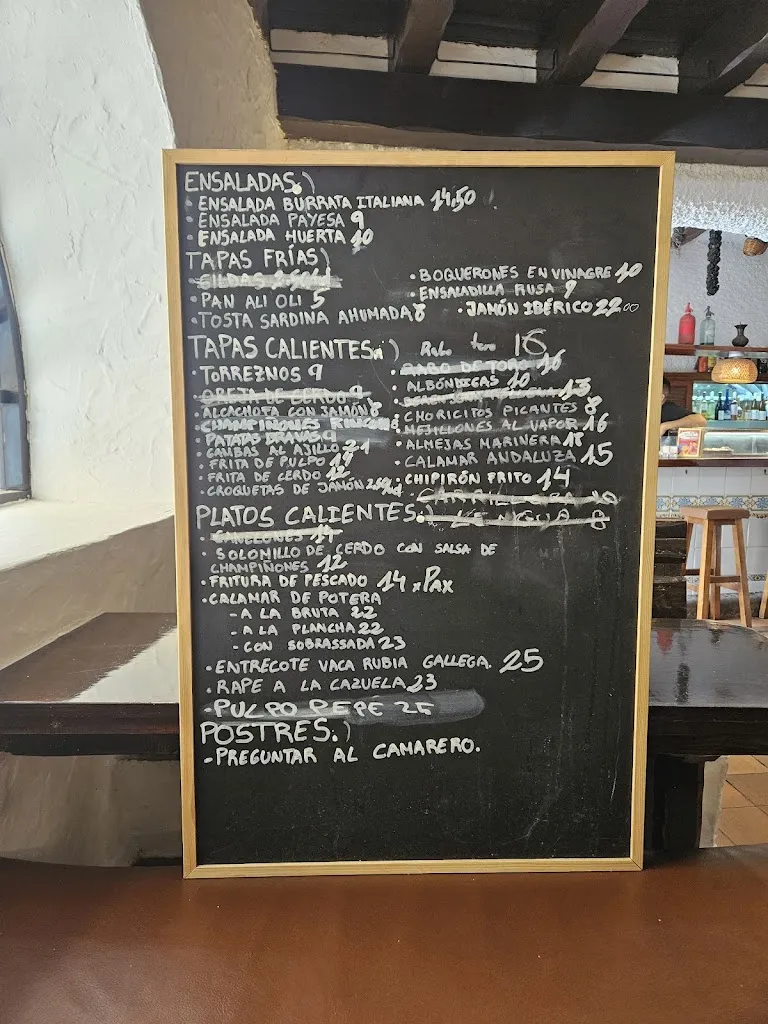 ENSALADAS.)
· ENSALADA BURRATA ITALIANA 14,50
· ENSALADA PAYESA 9
· ENSALADA HUERTA 10
TAPAS FRÍAS)
· GILDAS
· PAN ALI OLI 5
· TOSTA SARDINA AHUMADA 8
· BOQUERONES EN VINAGRE 10
· ENSALADILLA RUSA 9
· JAMÓN IBÉRICO 22.00
TAPAS CALIENTES.)
· TORREZNOS 9
· OREJA DE CERDO 9
· ALCACHOFA CON JAMÓN 8
· CHAMPIÑONES
· PATATAS BRAVAS 9
· GAMBAS AL AJILLO 21
· FRITA DE PULPO
· FRITA DE CERDO 12
· CROQUETAS DE JAMÓN
Rabo toro 16
· RABO DE TORO 16
· ALBÓNDIGAS 10
13
· CHORICITOS PICANTES 8
· MEJILLONES AL VAPOR 16
· ALMEJAS MARINERA 18
· CALAMAR ANDALUZA 15
· CHIPIRÓN FRITO 14
· CARRILLERA
· LENGUA 8
PLATOS CALIENTES.)
· CANELONES
· SOLOMILLO DE CERDO CON SALSA DE
CHAMPIÑONES 12
· FRITURA DE PESCADO 14 x PAX
· CALAMAR DE POTERA
- A LA BRUTA 22
- A LA PLANCHA 22
- CON SOBRASSADA 23
· ENTRECOTE VACA RUBIA GALLEGA. 25
· RAPE A LA CAZUELA 23
· PULPO PEPE
POSTRES.)
- PREGUNTAR AL CAMARERO.